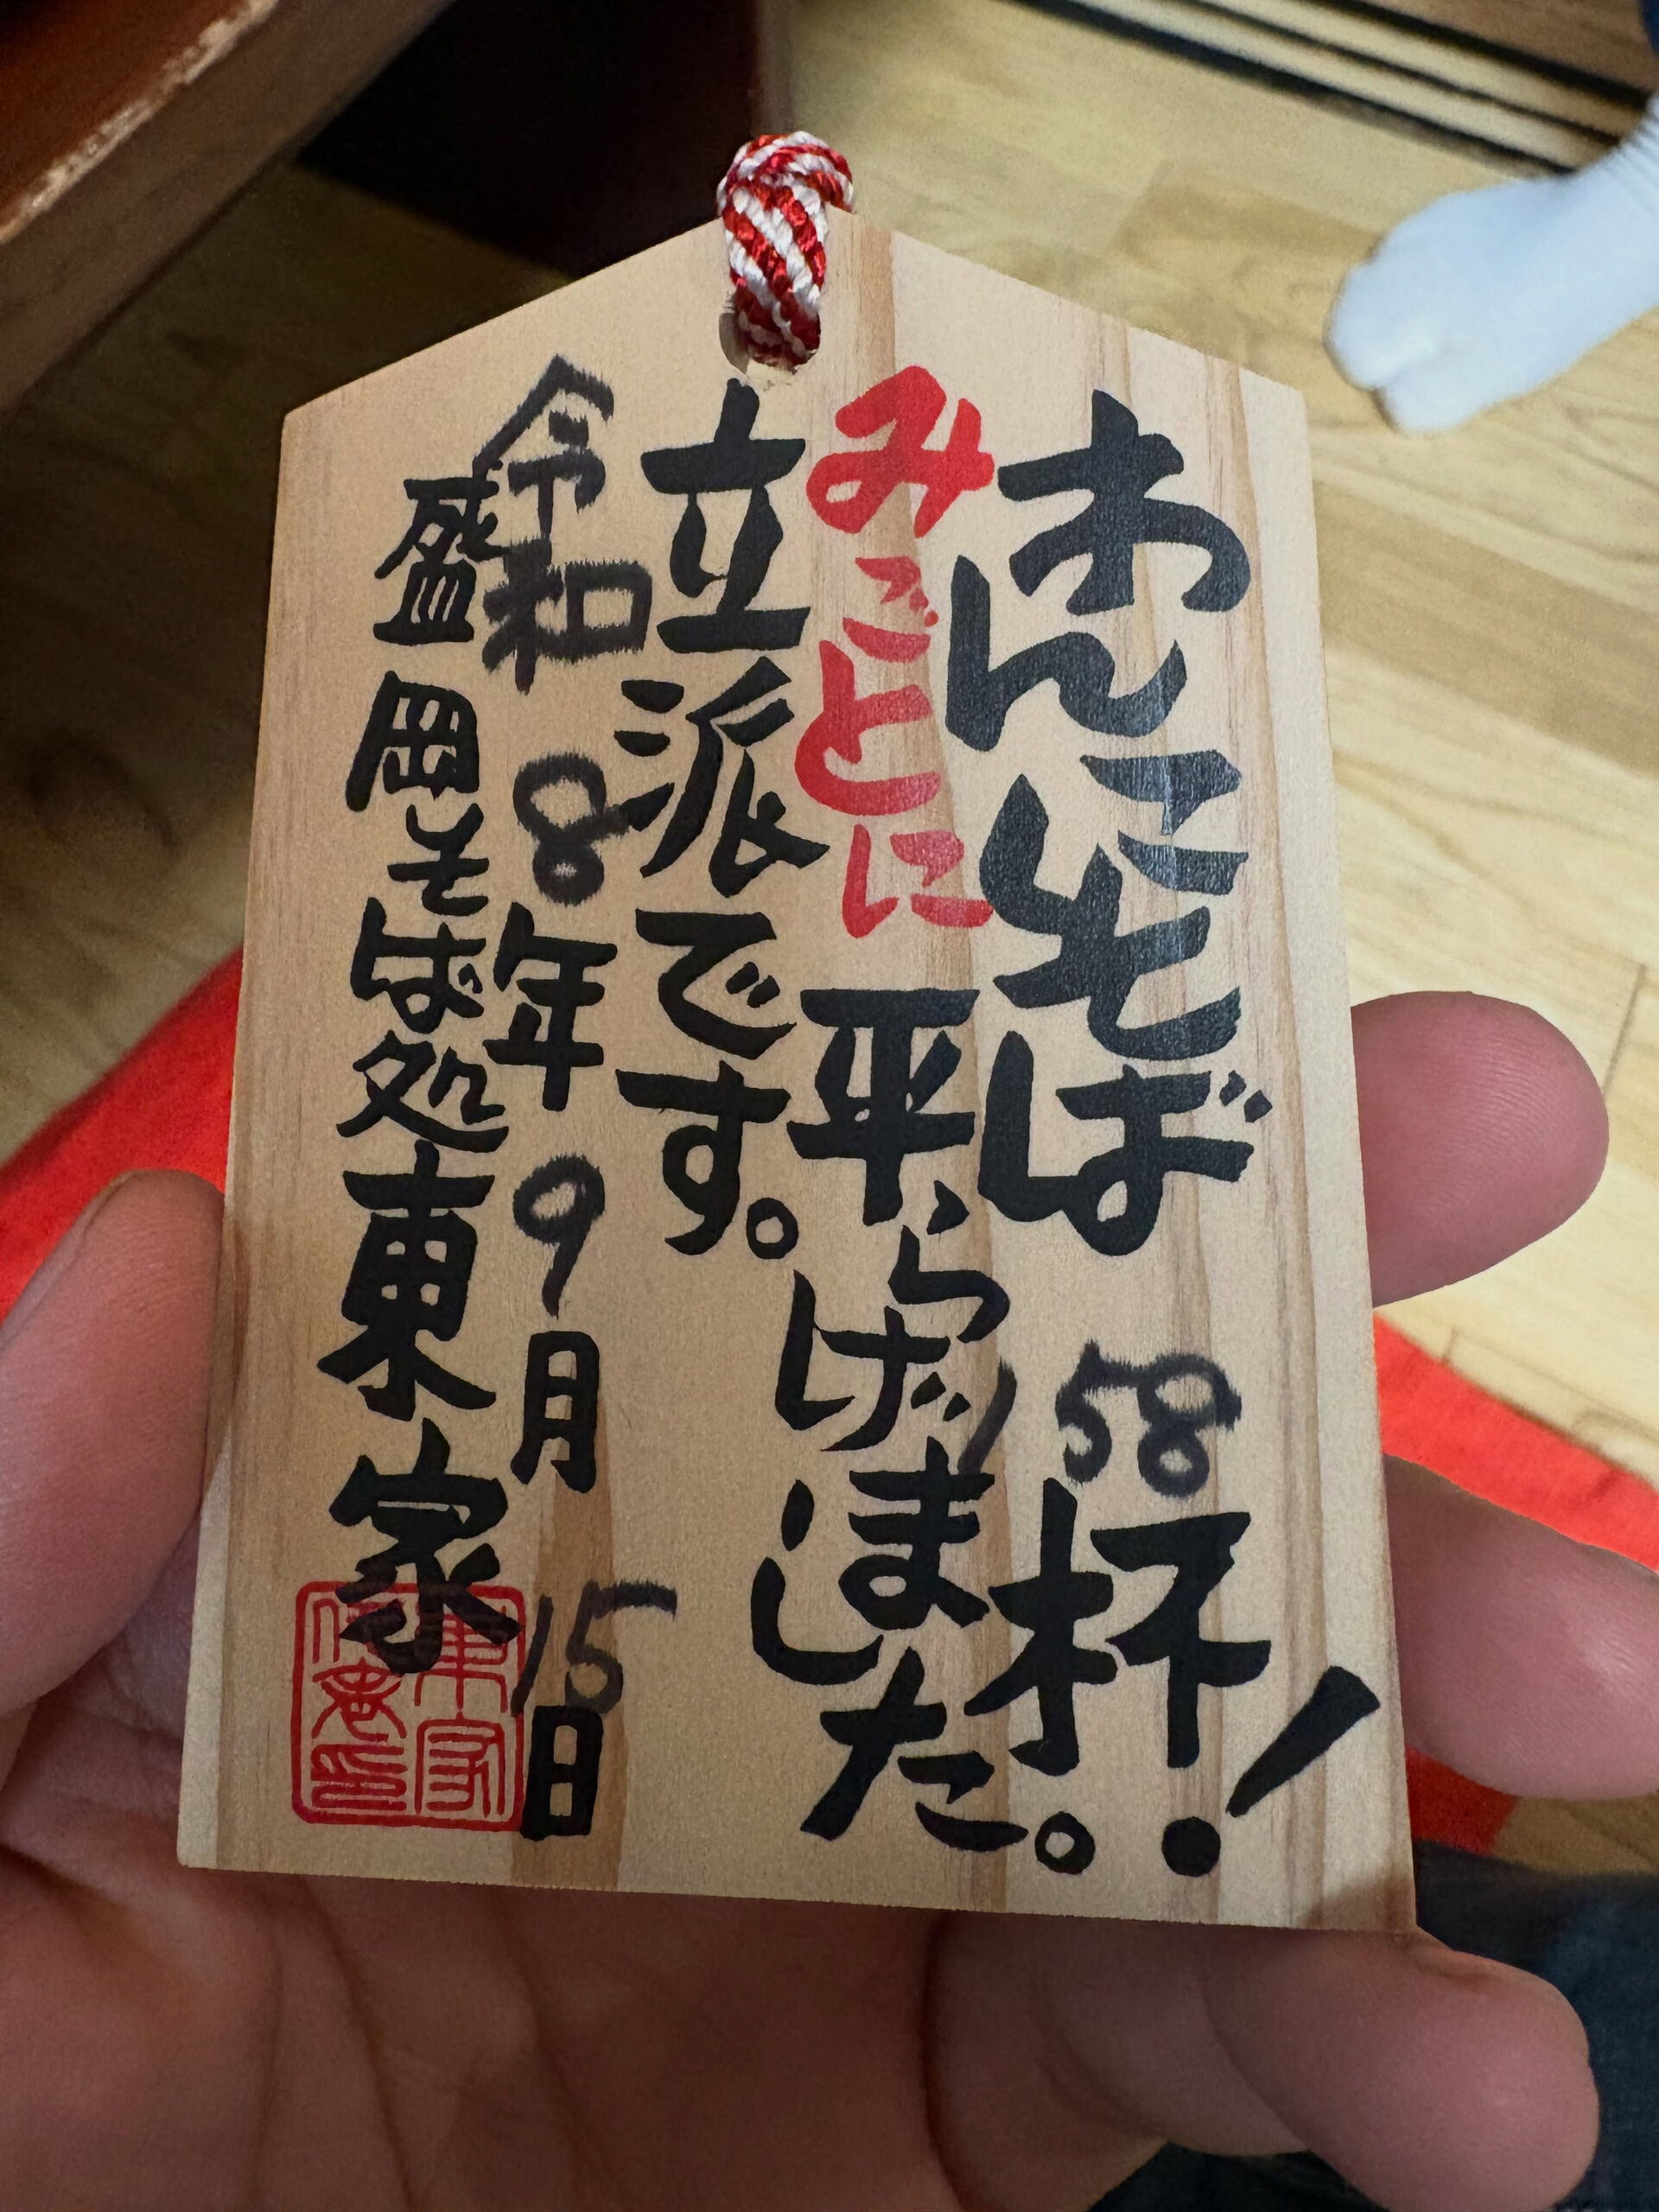 わんこそば 158杯！
みごとに平らげました。
立派です。
令和8年9月15日
盛岡そば処東家
東家